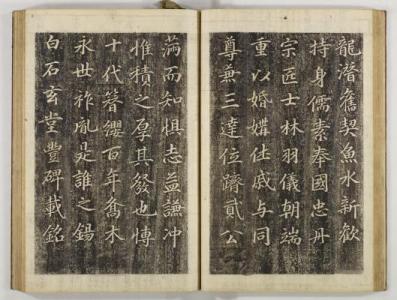 龍潛舊契魚水新歡
持身儒素奉國忠丹
宗匠士林羽儀朝端
重以婚媾休戚与同
尊兼三達位躋貳公
滿而知惧志益謙沖
惟積之厚其發也慱
十代簪纓百年喬木
永世祚胤是誰之錫
白石玄堂豐碑載銘